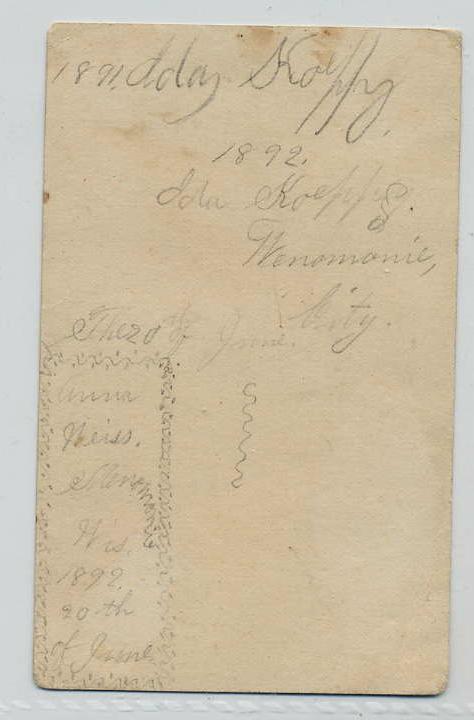 1891. Iday Koepp,
1892.
Ida Koepp
Menomonie,
City.
The 20th of June.
Anna
Weiss.
Menomonie
Wis.
1892.
20th
of June